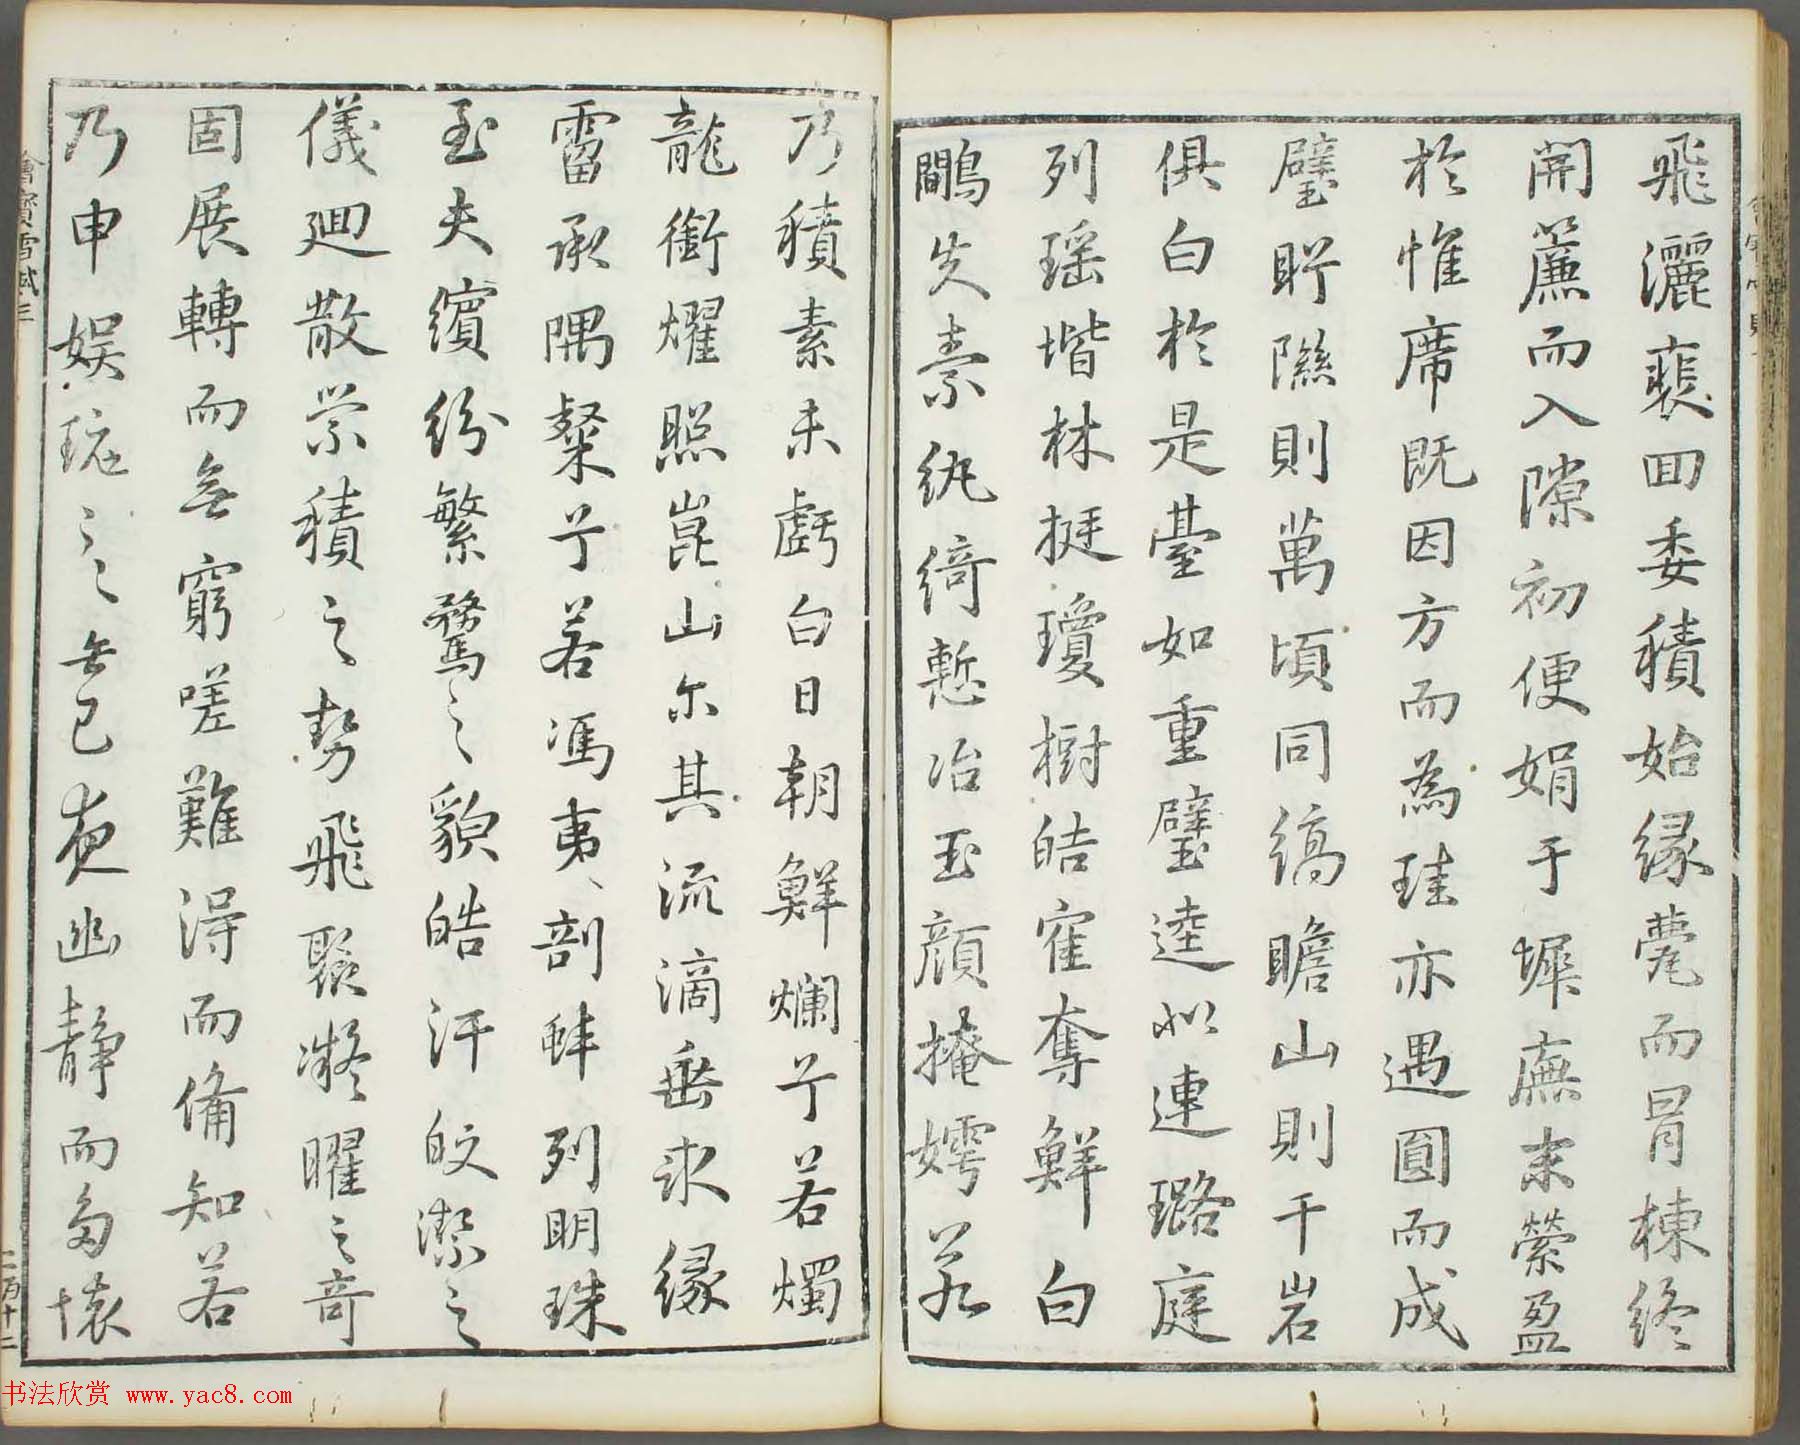 飛灑裵回委積始緣甍而冒棟終
開簾而入隙初便娟于墀廡末縈盈
於惟席既因方而為珪亦遇圓而成
璧眝隰則萬頃同縞瞻山則千岩
俱白於是臺如重璧逵似連璐庭
列瑶堦林挺瓊樹皓隺奪鮮白
鷴失素紈綺慙冶玉顔掩嫮若
乃積素未虧白日朝鮮爛兮若燭
龍銜燿照崑山尔其流滴垂冰緣
霤承隅粲兮若馮夷剖蚌列明珠
至夫繽紛繁騖之貌皓汗皎潔之
儀廻散縈積之勢飛聚凝曜之奇
固展轉而無窮嗟難得而備知若
乃申娱玩之無已夜幽静而多懷
書法欣赏 www.yac8.com